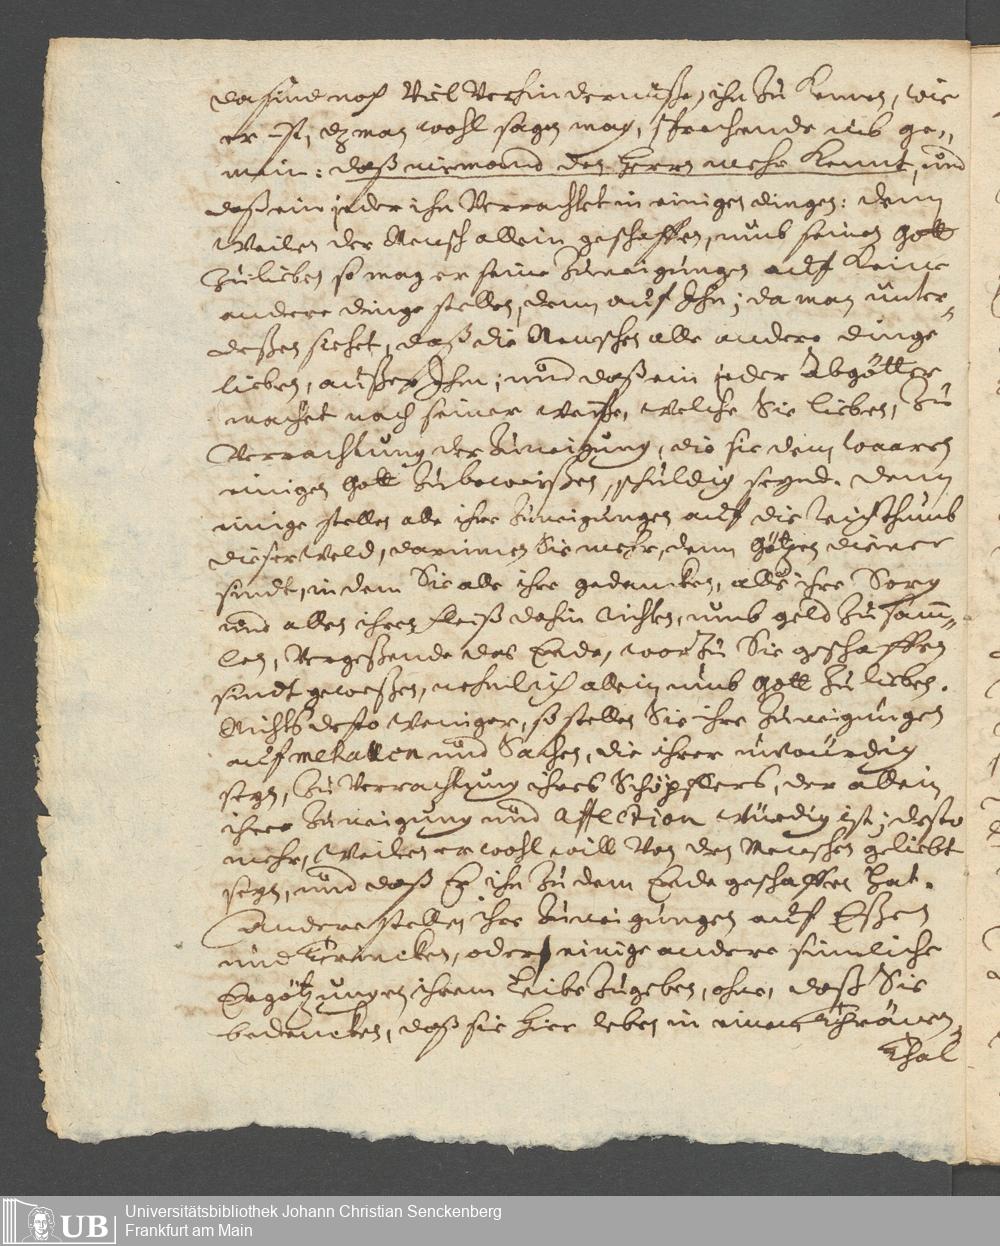 da sind noch Viel Verhindernüße, ihn zu Kennen, wie
er ist, dz man wohl sagen mag, sprechende ins ge„
mein: daß niemand den Herrn mehr Kennt, und
daß ein jeder ihn Verachtet in einigen dingen: denn
Weilen der Mensch allein geschaffen, umb seinen Gott
Zu lieben so mag er seine Zuneigungen auf Keine
andere dinge stellen, denn auf Ihn; da man unter„
deßen siehet, daß die Menschen alle andere dinge
lieben, außer Ihm; und daß ein jeder Abgötter
machet nach seiner Weiße, welche Sie lieben, Zu
Verachtung der Zuneigung, die sie dem waaren
einigen Gott Zubeweißen, schuldig seynd. denn
einige stellen alle ihre Zuneigungen auf die Reichthumb
dieser Weld, darinnen Sie mehr, denn Götzen diener
sindt, in dem Sie alle ihre gedancken, alle ihre Sorg
und allen ihren fleiß dahin Richten, umb geld Zu samm„
len, Vergeßende das Ende, worZu Sie geschaffen
sindt geweßen, nehmlich allein umb Gott Zu lieben.
Nichts desto Weniger, so stellen Sie ihre Zuneigungen
auf metallen und Sachen, die ihrer unwürdig
seyn, Zu Verachtung ihres Schöpffers, der allein
ihrer Zuneigung und affection Würdig ist; desto
mehr, Weilen er wohl will Von den Menschen geliebt
seyn, und daß Er ihn Zu dem Ende geschaffen hat.
Andere stellen ihre Zuneigungen auf Eßen
und Trincken, oder einige andere sinnliche
Ergötzungen ihrem Leibe Zugeben, ohne, daß Sie
bedencken, daß sie hier leben in einem Thränen„
Thal
UB
Universitätsbibliothek Johann Christian Senckenberg
Frankfurt am Main